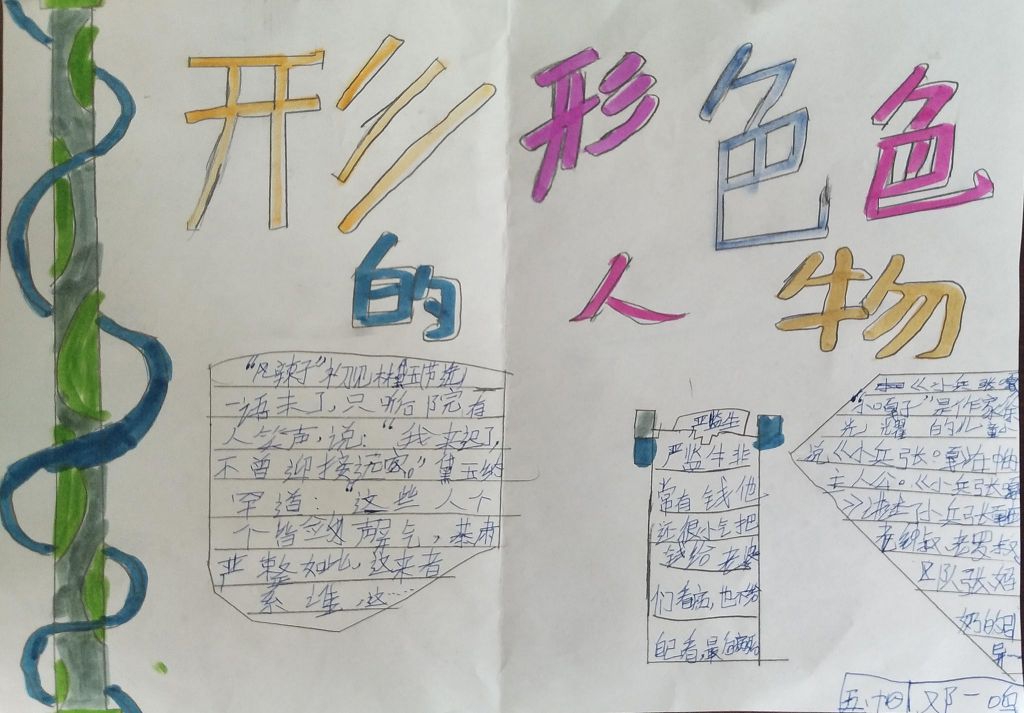 形形色色
的人物
"凤辣子"初见林黛玉节选
一语未了,只听后院有
人笑声,说:"我来迟了,
不曾迎接远客。"黛玉纳
罕道:"这些人个
个皆敛声屏气,恭肃
严整如此,这来者
系谁,这……
严监生
严监生非
常有钱他
还很小气把
钱给老婆
们看病,也不给
自己看,最后
《小兵张嘎
"小嘎子"是作家徐
光耀的儿童小
说《小兵张嘎》中
主人公。《小兵张嘎
》讲述了小兵张嘎
老钟叔,老罗叔
区队张
奶奶的
五
邓一鸣